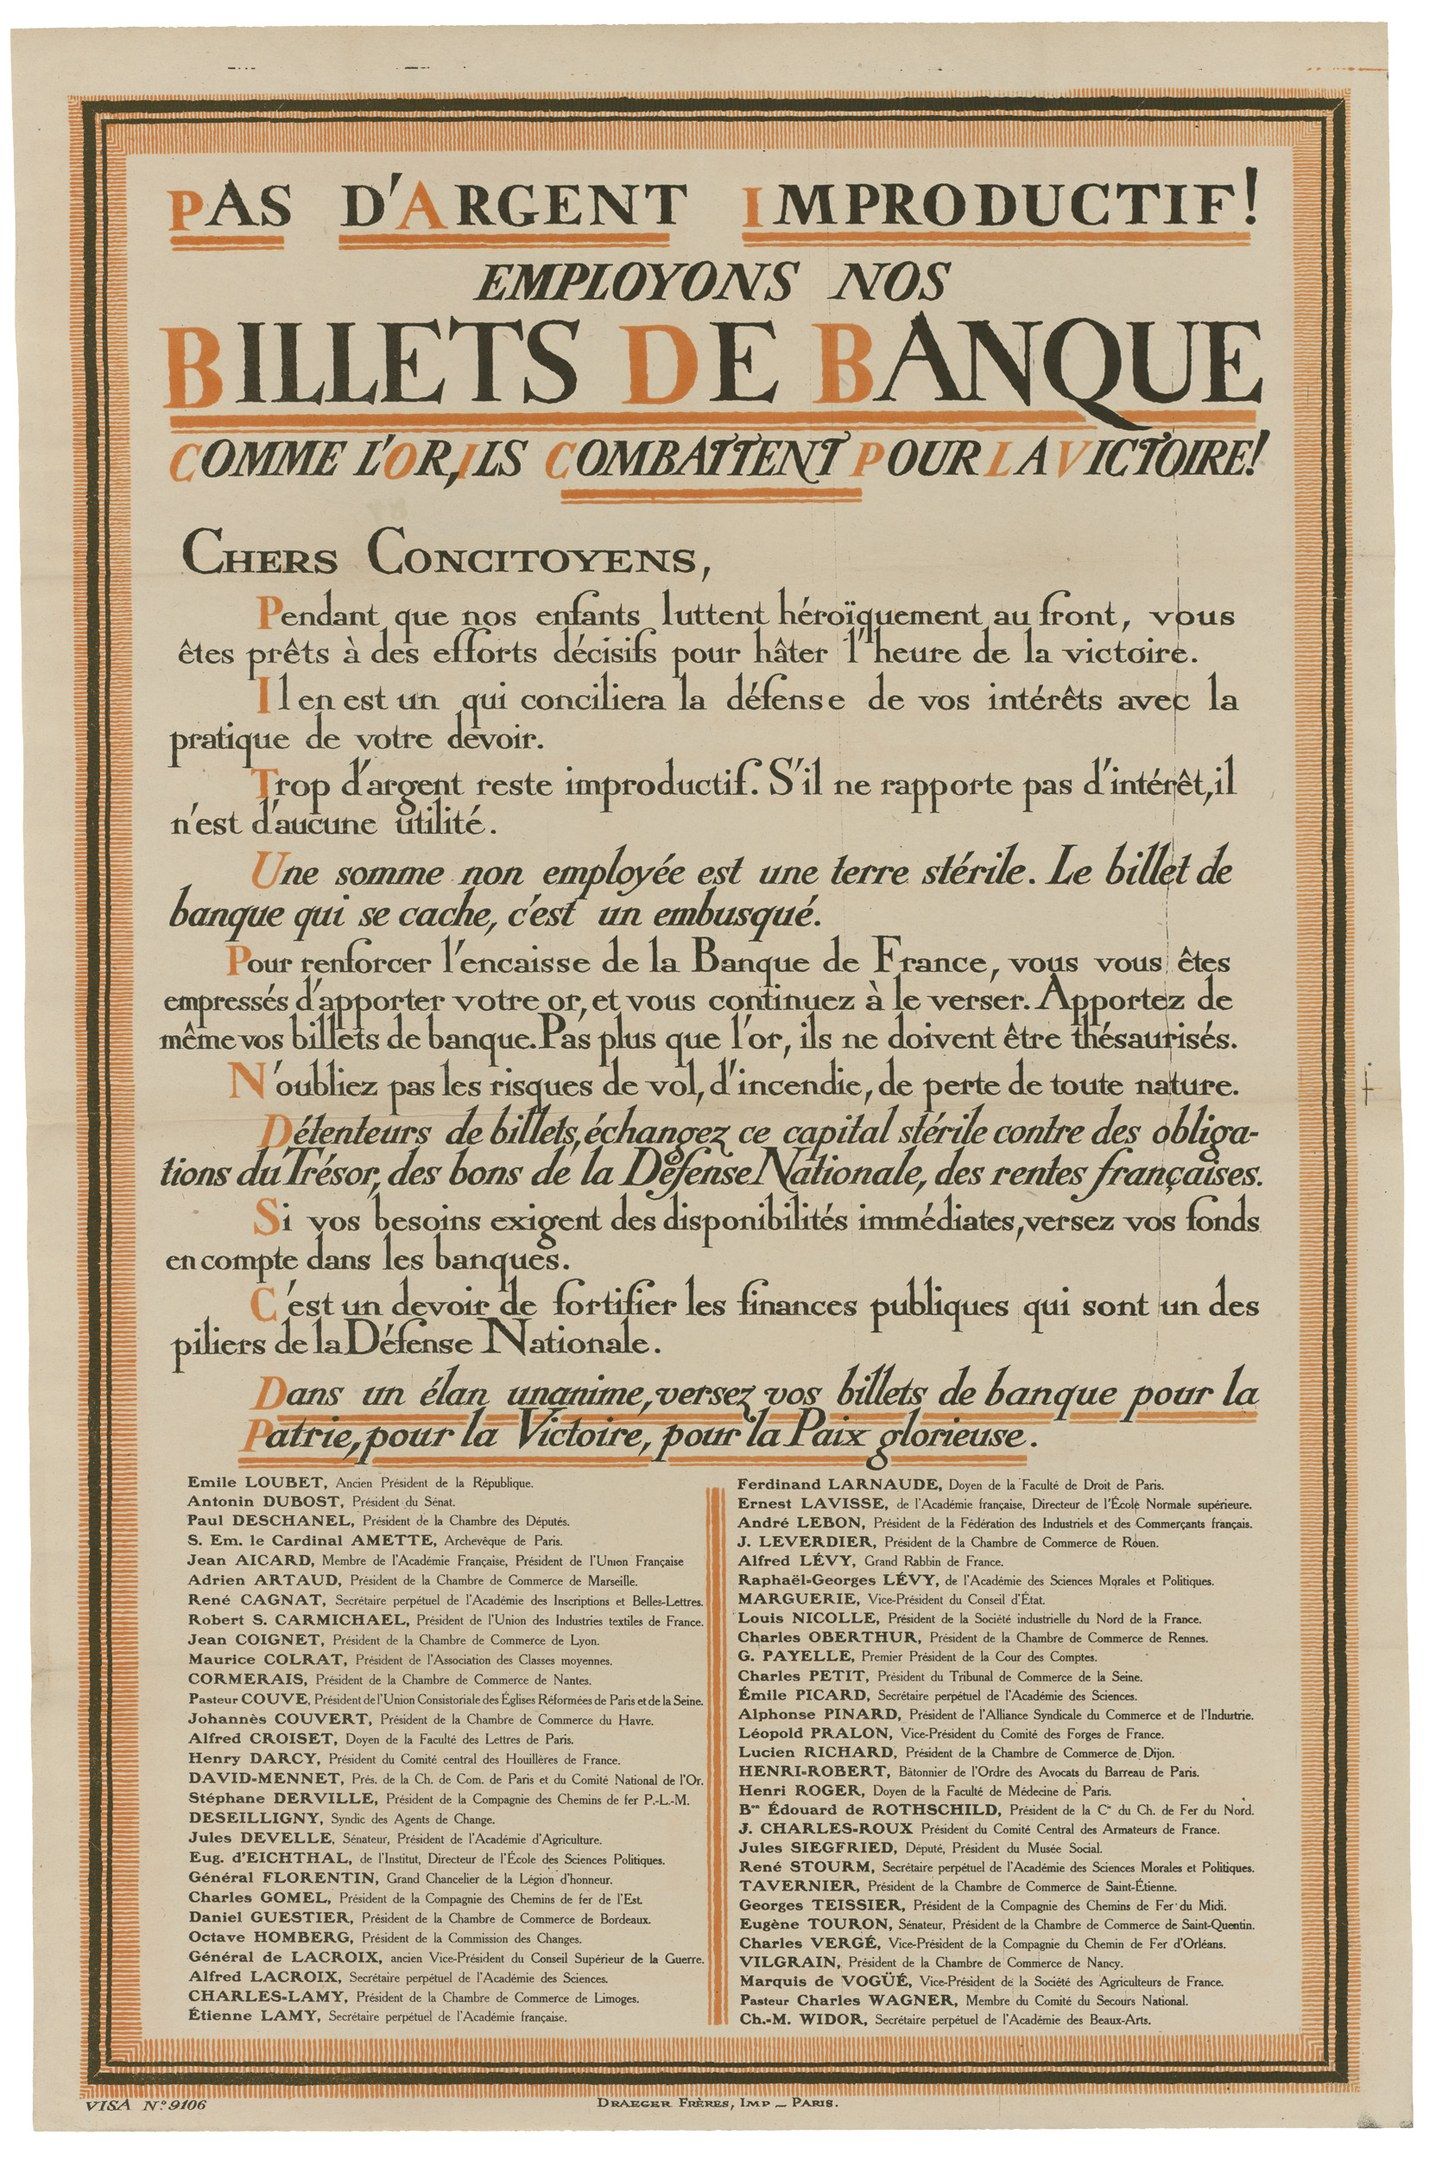 PAS D'ARGENT IMPRODUCTIF!
EMPLOYONS NOS
BILLETS DE BANQUE
COMME L'OR, ILS COMBATTENT POUR LA VICTOIRE!
CHERS CONCITOYENS,
Pendant que nos enfants luttent héroïquement au front, vous
êtes prêts à des efforts décisifs pour hâter l'heure de la victoire.
Il en est un qui conciliera la défense de vos intérêts avec la
pratique de votre devoir.
Trop d'argent reste improductif. S'il ne rapporte pas d'intérêt, il
n'est d'aucune utilité.
Une somme non employée est une terre stérile. Le billet de
banque qui se cache, c'est un embusqué.
Pour renforcer l'encaisse de la Banque de France, vous vous êtes
empressés d'apporter votre or, et vous continuez à le verser. Apportez de
même vos billets de banque. Pas plus que l'or, ils ne doivent être thésaurisés.
N'oubliez pas les risques de vol, d'incendie, de perte de toute nature.
Détenteurs de billets, échangez ce capital stérile contre des obliga-
tions du Trésor, des bons de la Défense Nationale, des rentes françaises.
Si vos besoins exigent des disponibilités immédiates, versez vos fonds
en compte dans les banques.
C'est un devoir de fortifier les finances publiques qui sont un des
piliers de la Défense Nationale.
Dans un élan unanime, versez vos billets de banque pour la
Patrie, pour la Victoire, pour la Paix glorieuse.
Emile LOUBET, Ancien Président de la République.
Antonin DUBOST, Président du Sénat.
Paul DESCHANEL, Président de la Chambre des Députés.
S. Em. le Cardinal AMETTE, Archevêque de Paris.
Jean AICARD, Membre de l'Académie Française, Président de l'Union Française
Adrien ARTAUD, Président de la Chambre de Commerce de Marseille.
René CAGNAT, Secrétaire perpétuel de l'Académie des Inscriptions et Belles-Lettres.
Robert S. CARMICHAEL, Président de l'Union des Industries textiles de France.
Jean COIGNET, Président de la Chambre de Commerce de Lyon.
Maurice COLRAT, Président de l'Association des Classes moyennes.
CORMERAIS, Président de la Chambre de Commerce de Nantes.
Pasteur COUVE, Président de l'Union Consistoriale des Églises Réformées de Paris et de la Seine.
Johannès COUVERT, Président de la Chambre de Commerce du Havre.
Alfred CROISET, Doyen de la Faculté des Lettres de Paris.
Henry DARCY, Président du Comité central des Houillères de France.
DAVID-MENNET, Prés. de la Ch. de Com. de Paris et du Comité National de l'Or.
Stéphane DERVILLE, Président de la Compagnie des Chemins de fer P.-L.-M.
DESEILLIGNY, Syndic des Agents de Change.
Jules DEVELLE, Sénateur, Président de l'Académie d'Agriculture.
Eug. d'EICHTHAL, de l'Institut, Directeur de l'École des Sciences Politiques.
Général FLORENTIN, Grand Chancelier de la Légion d'honneur.
Charles GOMEL, Président de la Compagnie des Chemins de fer de l'Est.
Daniel GUESTIER, Président de la Chambre de Commerce de Bordeaux.
Octave HOMBERG, Président de la Commission des Changes.
Général de LACROIX, ancien Vice-Président du Conseil Supérieur de la Guerre.
Alfred LACROIX, Secrétaire perpétuel de l'Académie des Sciences.
CHARLES-LAMY, Président de la Chambre de Commerce de Limoges.
Étienne LAMY, Secrétaire perpétuel de l'Académie française.
Ferdinand LARNAUDE, Doyen de la Faculté de Droit de Paris.
Ernest LAVISSE, de l'Académie française, Directeur de l'École Normale supérieure.
André LEBON, Président de la Fédération des Industriels et des Commerçants français.
J. LEVERDIER, Président de la Chambre de Commerce de Rouen.
Alfred LÉVY, Grand Rabbin de France.
Raphaël-Georges LÉVY, de l'Académie des Sciences Morales et Politiques.
MARGUERIE, Vice-Président du Conseil d'État.
Louis NICOLLE, Président de la Société industrielle du Nord de la France.
Charles OBERTHUR, Président de la Chambre de Commerce de Rennes.
G. PAYELLE, Premier Président de la Cour des Comptes.
Charles PETIT, Président du Tribunal de Commerce de la Seine.
Émile PICARD, Secrétaire perpétuel de l'Académie des Sciences.
Alphonse PINARD, Président de l'Alliance Syndicale du Commerce et de l'Industrie.
Léopold PRALON, Vice-Président du Comité des Forges de France.
Lucien RICHARD, Président de la Chambre de Commerce de Dijon.
HENRI-ROBERT, Bâtonnier de l'Ordre des Avocats du Barreau de Paris.
Henri ROGER, Doyen de la Faculté de Médecine de Paris.
Bon Édouard de ROTHSCHILD, Président de la Cie du Ch. de Fer du Nord.
J. CHARLES-ROUX Président du Comité Central des Armateurs de France.
Jules SIEGFRIED, Député, Président du Musée Social.
René STOURM, Secrétaire perpétuel de l'Académie des Sciences Morales et Politiques.
TAVERNIER, Président de la Chambre de Commerce de Saint-Étienne.
Georges TEISSIER, Président de la Compagnie des Chemins de Fer du Midi.
Eugène TOURON, Sénateur, Président de la Chambre de Commerce de Saint-Quentin.
Charles VERGÉ, Vice-Président de la Compagnie du Chemin de Fer d'Orléans.
VILGRAIN, Président de la Chambre de Commerce de Nancy.
Marquis de VOGÜÉ, Vice-Président de la Société des Agriculteurs de France.
Pasteur Charles WAGNER, Membre du Comité du Secours National.
Ch.-M. WIDOR, Secrétaire perpétuel de l'Académie des Beaux-Arts.
VISA N° 9106
DRAEGER FRÈRES, IMP _ PARIS.